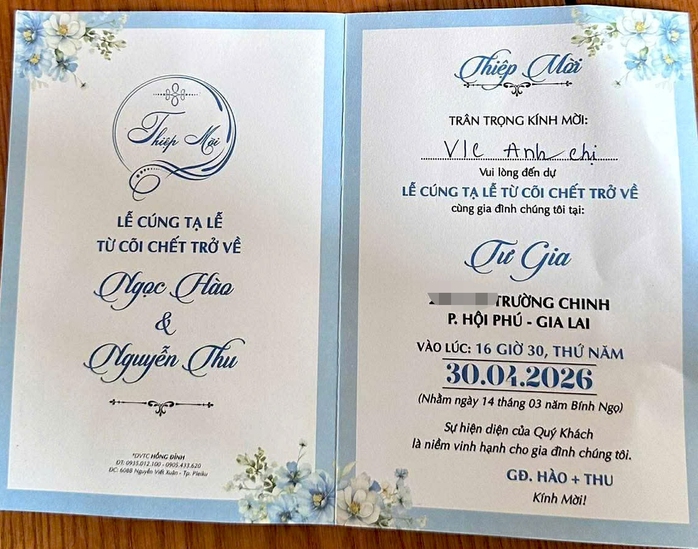 Thiệp Mời
LỄ CÚNG TẠ LỄ
TỪ CÕI CHẾT TRỞ VỀ
Ngọc Hào
&
Nguyễn Thu
*DVTC HỒNG ĐÌNH
ĐT: 0935.012.100 - 0905.433.620
ĐC: 60BB Nguyễn Viết Xuân - Tp. Pleiku
Thiệp Mời
TRÂN TRỌNG KÍNH MỜI:
V/C Anh chị
Vui lòng đến dự
LỄ CÚNG TẠ LỄ TỪ CÕI CHẾT TRỞ VỀ
cùng gia đình chúng tôi tại:
Tư Gia
TRƯỜNG CHINH
P. HỘI PHÚ - GIA LAI
VÀO LÚC: 16 GIỜ 30, THỨ NĂM
30.04.2026
(Nhằm ngày 14 tháng 03 năm Bính Ngọ)
Sự hiện diện của Quý Khách
là niềm vinh hạnh cho gia đình chúng tôi.
GĐ. HÀO + THU
Kính Mời!